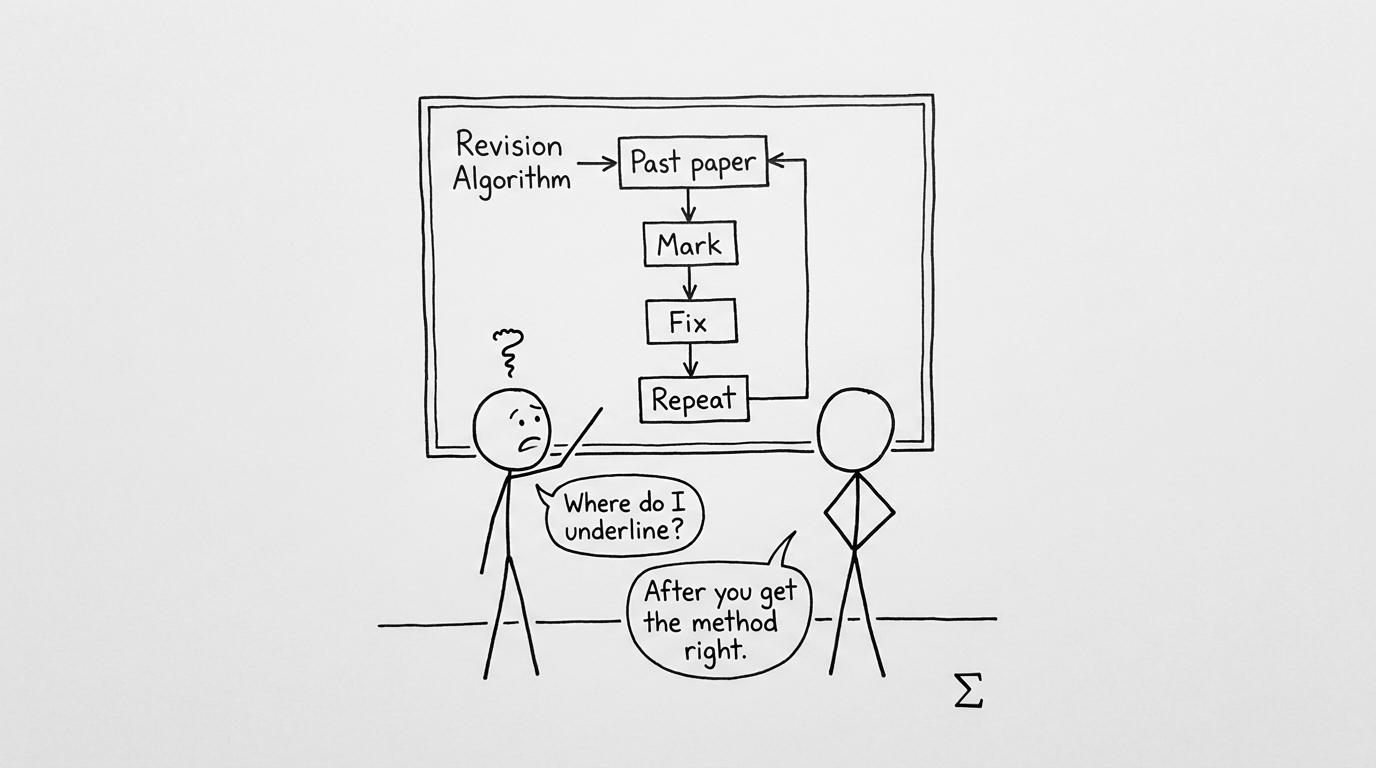 Revision
Algorithm
Past paper
Mark
Fix
Repeat
?
Where do I
underline?
After you get
the method
right.
Σ